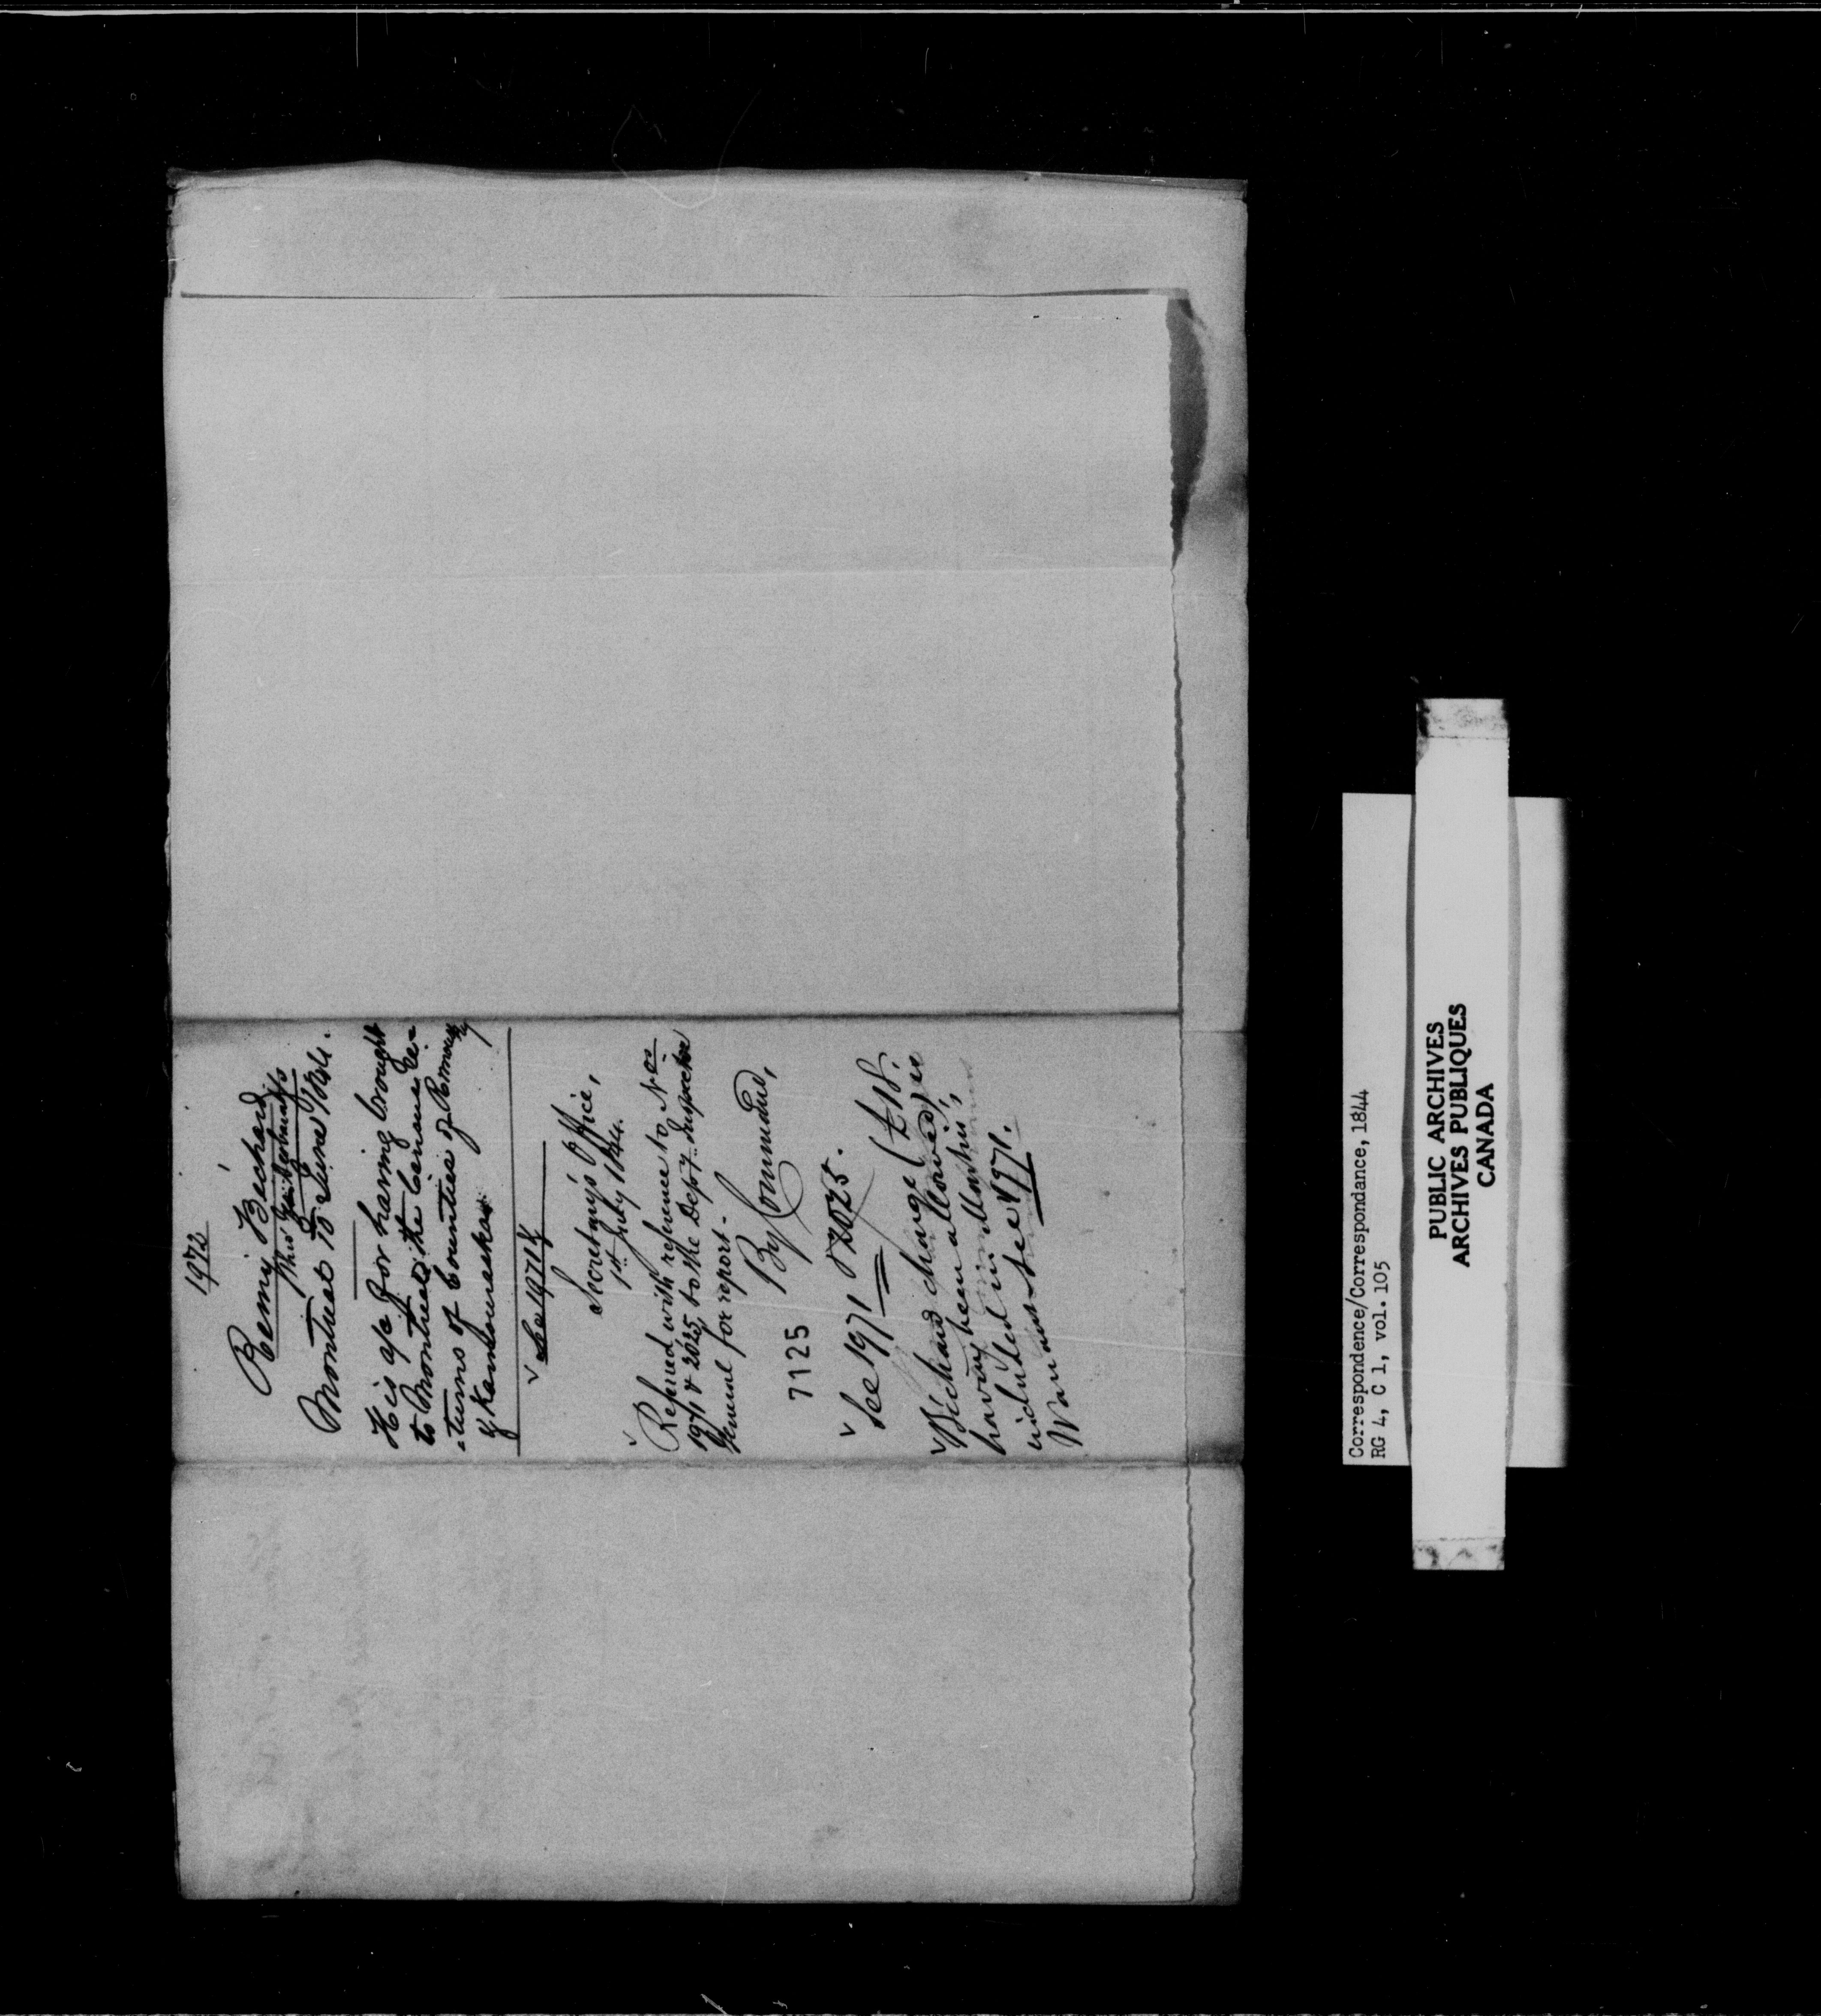 1972
Remi Bechard
Montreal 10 June 1844.
His a/c for having brought
to Montreal the Census Re-
-turns of Counties of Rimouski
& Kamouraska
See 1971
Secretary's Office,
1st July 1844.
Referred with reference to Nos
1971 & 2025 to the Depy. Inspector
General for report.
By Command,
7125
See 1971 & 2025.
Bechard's charge (£18.
having been allowed, is
included in Martin's
Warrant see 1971.
Correspondence/Correspondance, 1844
RG 4, C 1, vol. 105
PUBLIC ARCHIVES
ARCHIVES PUBLIQUES
CANADA